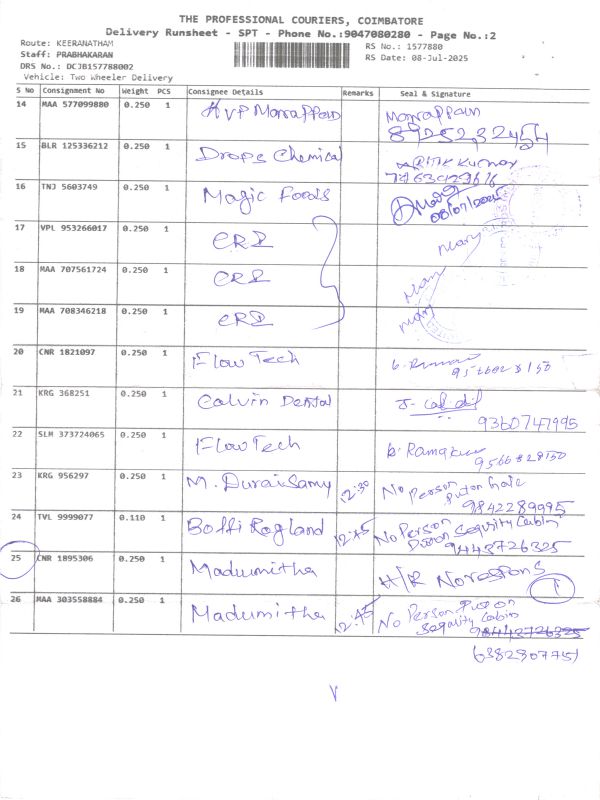 THE PROFESSIONAL COURIERS, COIMBATORE
Delivery Runsheet - SPT - Phone No.:9047080280 - Page No.:2
Route: KEERANATHAM
Staff: PRABHAKARAN
DRS No.: DCJB157788002
Vehicle: Two Wheeler Delivery
RS No.: 1577880
RS Date: 08-Jul-2025
S No Consignment No Weight PCS Consignee Details Remarks Seal & Signature
14 MAA 577099880 0.250 1 Marrappan
89252 32454
15 BLR 125336212 0.250 1 Drops Chemical
16 TNJ 5603749 0.250 1 Magic Foods
08/07/2025
17 VPL 953266017 0.250 1 CRI Mary
18 MAA 707561724 0.250 1 CRI
19 MAA 708346218 0.250 1 CRI Mary
20 CNR 1821097 0.250 1 Flow Tech
21 KRG 368251 0.250 1 Calvin Dental
9360747995
22 SLM 373724065 0.250 1 Flow Tech
9566828150
23 KRG 956297 0.250 1 M. Duraisamy 12:30 No Person
9842289995
24 TVL 9999077 0.110 1 Boffi Regland 12:45 No Person
Sequity Cabin
9443726325
25 CNR 1895306 0.250 1 Madumitha H/R No respons
1
26 MAA 303558884 0.250 1 Madumitha 12:45 No Person Put on
Sequity Cabin
6382807751